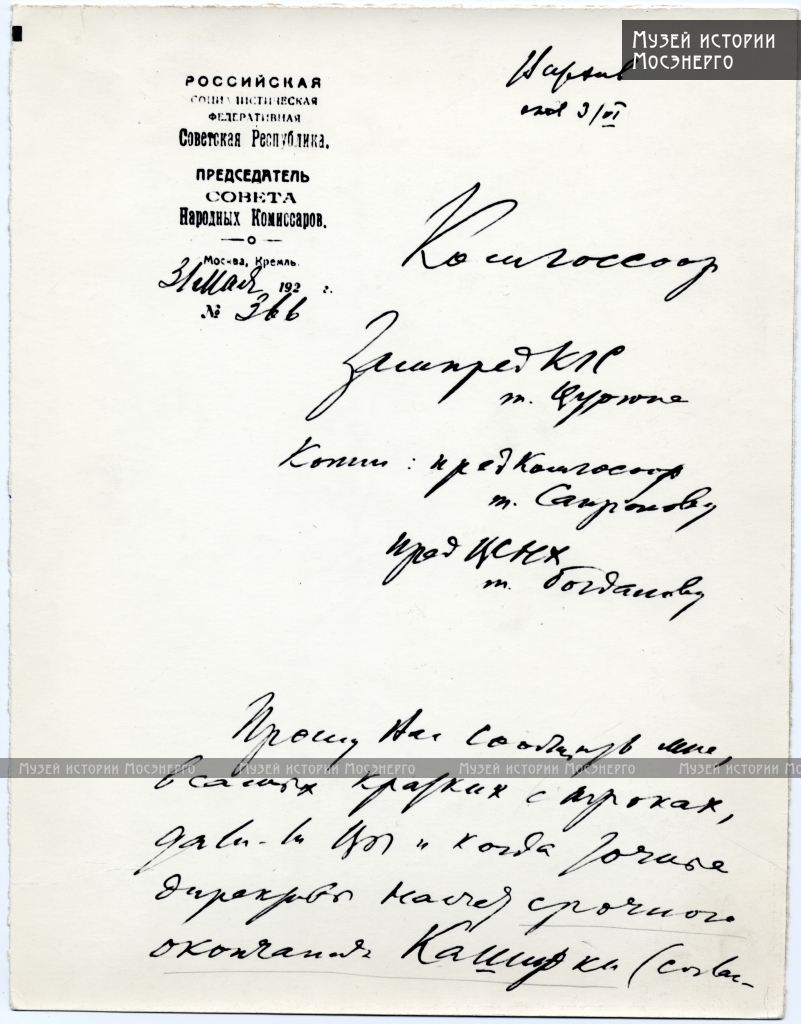 Музей истории
Мосэнерго
РОССИЙСКАЯ
СОЦИАЛИСТИЧЕСКАЯ
ФЕДЕРАТИВНАЯ
Советская Республика.
ПРЕДСЕДАТЕЛЬ
СОВЕТА
Народных Комиссаров.
Москва, Кремль.
31 Мая 192 г.
№ 366
3/VI
Комгоссоор
Зампред
т. Цурюпе
Копии: предКомгосоор
т. Сапронову
пред
т. Богданову
Прошу Вас сообщить мне,
Музей истории Мосэнерго Музей истории Мосэнерго Музей истории Мосэнерго Музей истории М
в самых кратких строках,
дали-ли Вы и когда точные
директивы насчет срочного
окончания Каширки